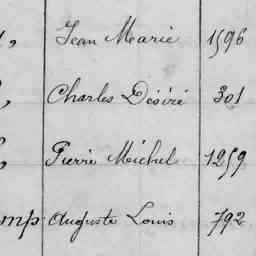 Jean Marie 1596
Charles Désiré 301
Pierre Michel 1259
mp: Auguste Louis 792